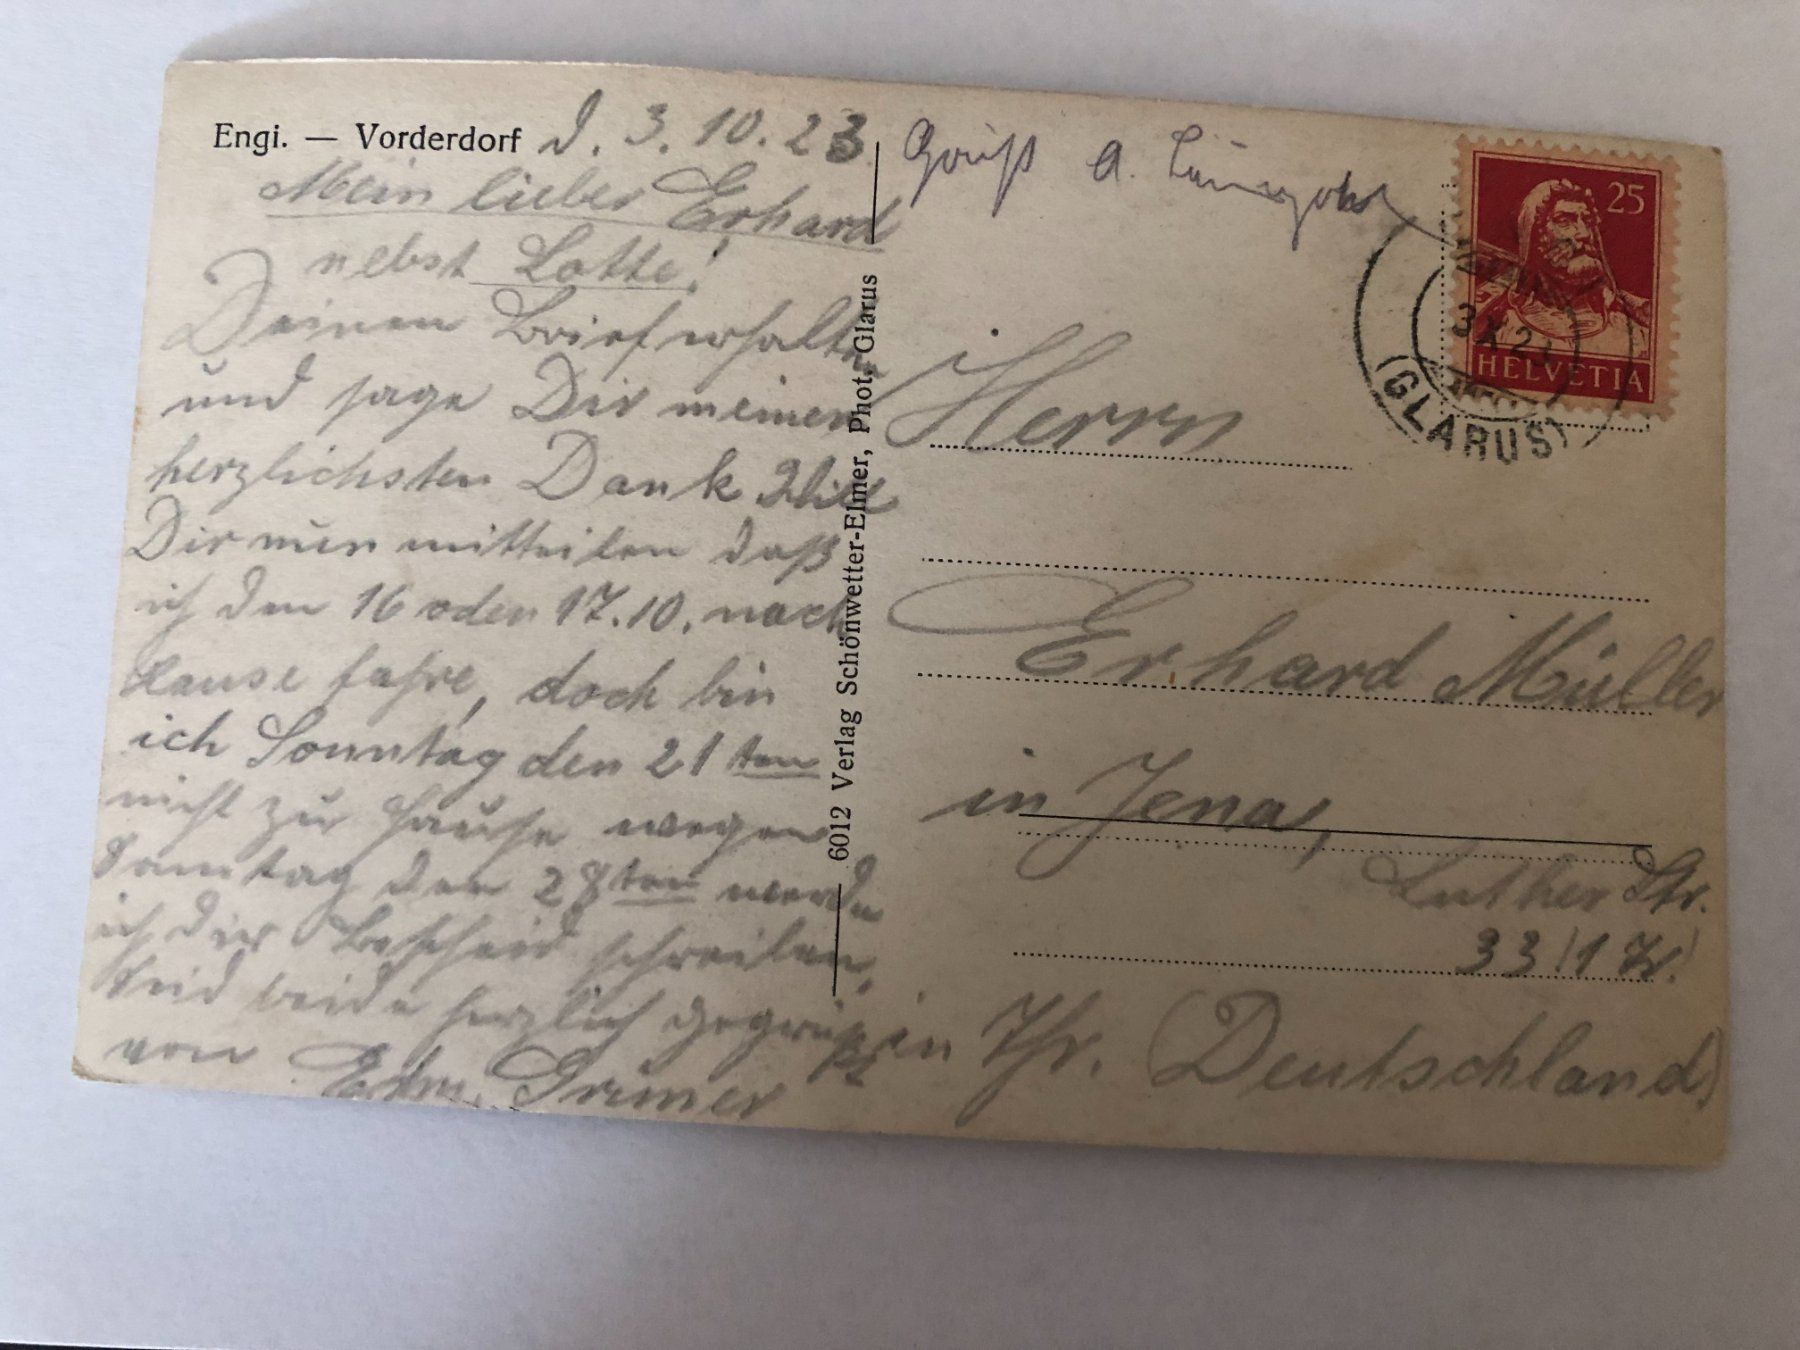 Engi. — Vorderdorf d. 3.10.23
Mein lieber Erhard
nebst Lotte!
Deinen Brief erhalten
und sage Dir meinen
herzlichsten Dank Will
Dir nun mitteilen daß
ich den 16 oder 17.10. nach
Hause fahre, doch bin
ich Sonntag den 21ten
nicht zu Hause wegen
Sonntag den 28ten werde
ich Dir Bescheid schreiben,
Seid beide herzlich gegrüßt
von Edm. Grimer
6012 Verlag Schönwetter-Elmer, Phot. Glarus
Gruß a.
25
HELVETIA
3 X 2
(GLARUS)
Herrn
Erhard Müller
in Jena,
Luther Str.
33/1 Tr.
in Thr. (Deutschland)